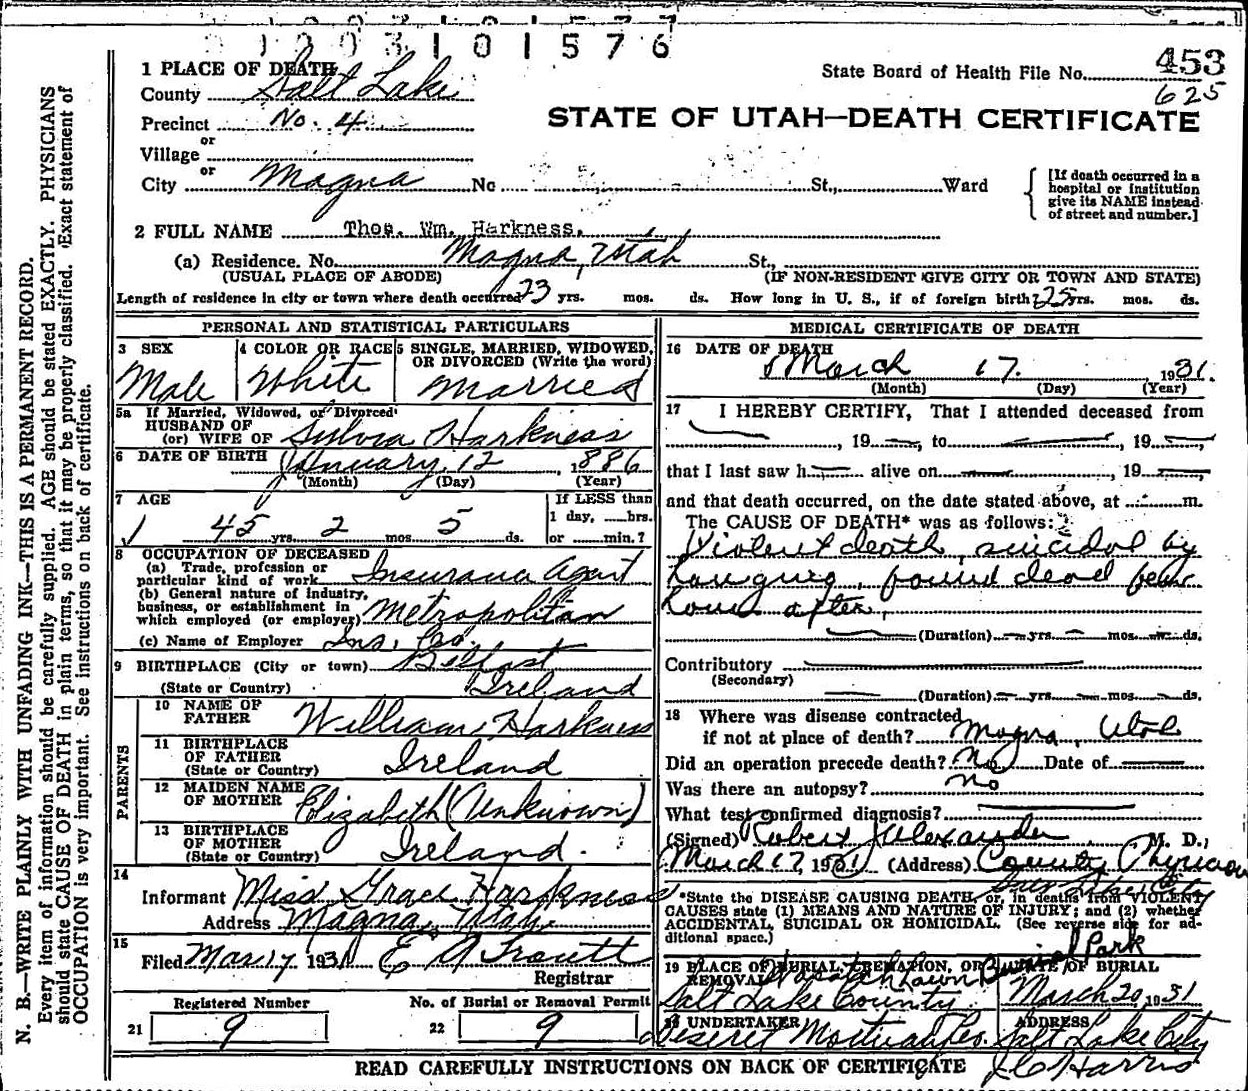 0 1 0 0 3 1 0 1 5 7 6
1 PLACE OF DEATH
County Salt Lake
State Board of Health File No. 453
625
Precinct No. 4
or
Village
or
STATE OF UTAH—DEATH CERTIFICATE
City Magna No St., Ward
[If death occurred in a hospital or institution give its NAME instead of street and number.]
2 FULL NAME Thos. Wm. Harkness.
(a) Residence. No. Magna, Utah St.,
(USUAL PLACE OF ABODE) (IF NON-RESIDENT GIVE CITY OR TOWN AND STATE)
Length of residence in city or town where death occurred 23 yrs. mos. ds. How long in U. S., if of foreign birth? 25 yrs. mos. ds.
PERSONAL AND STATISTICAL PARTICULARS
3 SEX
Male
4 COLOR OR RACE
White
5 SINGLE, MARRIED, WIDOWED,
OR DIVORCED (Write the word)
Married
5a If Married, Widowed, or Divorced
HUSBAND OF
(or) WIFE OF Sylvia Harkness
6 DATE OF BIRTH January 12, 1886
(Month) (Day) (Year)
7 AGE
45 yrs. 2 mos 5 ds.
If LESS than
1 day, hrs.
or min.?
8 OCCUPATION OF DECEASED
(a) Trade, profession or
particular kind of work Insurance Agent
(b) General nature of industry,
business, or establishment in
which employed (or employer) Metropolitan
(c) Name of Employer Ins. Co.
9 BIRTHPLACE (City or town) Belfast
(State or Country) Ireland
PARENTS
10 NAME OF
FATHER William Harkness
11 BIRTHPLACE
OF FATHER
(State or Country) Ireland
12 MAIDEN NAME
OF MOTHER Elizabeth (Unknown)
13 BIRTHPLACE
OF MOTHER
(State or Country) Ireland.
14
Informant Miss Grace Harkness
Address Magna, Utah.
15
Filed Mar 17 1931 E A Troutt
Registrar
Registered Number
21 9
No. of Burial or Removal Permit
22 9
MEDICAL CERTIFICATE OF DEATH
16 DATE OF DEATH
March 17. 1931.
(Month) (Day) (Year)
17 I HEREBY CERTIFY, That I attended deceased from
, 19 , to , 19
that I last saw h alive on , 19
and that death occurred, on the date stated above, at m.
The CAUSE OF DEATH* was as follows:
Violent death, suicidal by
hanging, found dead few
hours after,
(Duration) yrs. mos. ds.
Contributory
(Secondary)
(Duration) yrs. mos. ds.
18 Where was disease contracted
if not at place of death? Magna, Utah
Did an operation precede death? No Date of
Was there an autopsy? no
What test confirmed diagnosis?
(Signed) Robert Alexander M. D.,
March 17, 1931 (Address) County Physician
Salt Lake City
*State the DISEASE CAUSING DEATH, or, in deaths from VIOLENT
CAUSES state (1) MEANS AND NATURE OF INJURY; and (2) whether
ACCIDENTAL, SUICIDAL OR HOMICIDAL. (See reverse side for ad-
ditional space.)
19 PLACE OF BURIAL, CREMATION, OR REMOVAL Wasatch Lawn Burial Park
Salt Lake County
DATE OF BURIAL
March 20, 1931
20 UNDERTAKER
Deseret Mortuary Co.
ADDRESS
Salt Lake City
J. C. Harris
READ CAREFULLY INSTRUCTIONS ON BACK OF CERTIFICATE
N. B.—WRITE PLAINLY WITH UNFADING INK—THIS IS A PERMANENT RECORD.
Every item of information should be carefully supplied. AGE should be stated EXACTLY. PHYSICIANS
should state CAUSE OF DEATH in plain terms, so that it may be properly classified. Exact statement of
OCCUPATION is very important. See instructions on back of certificate.